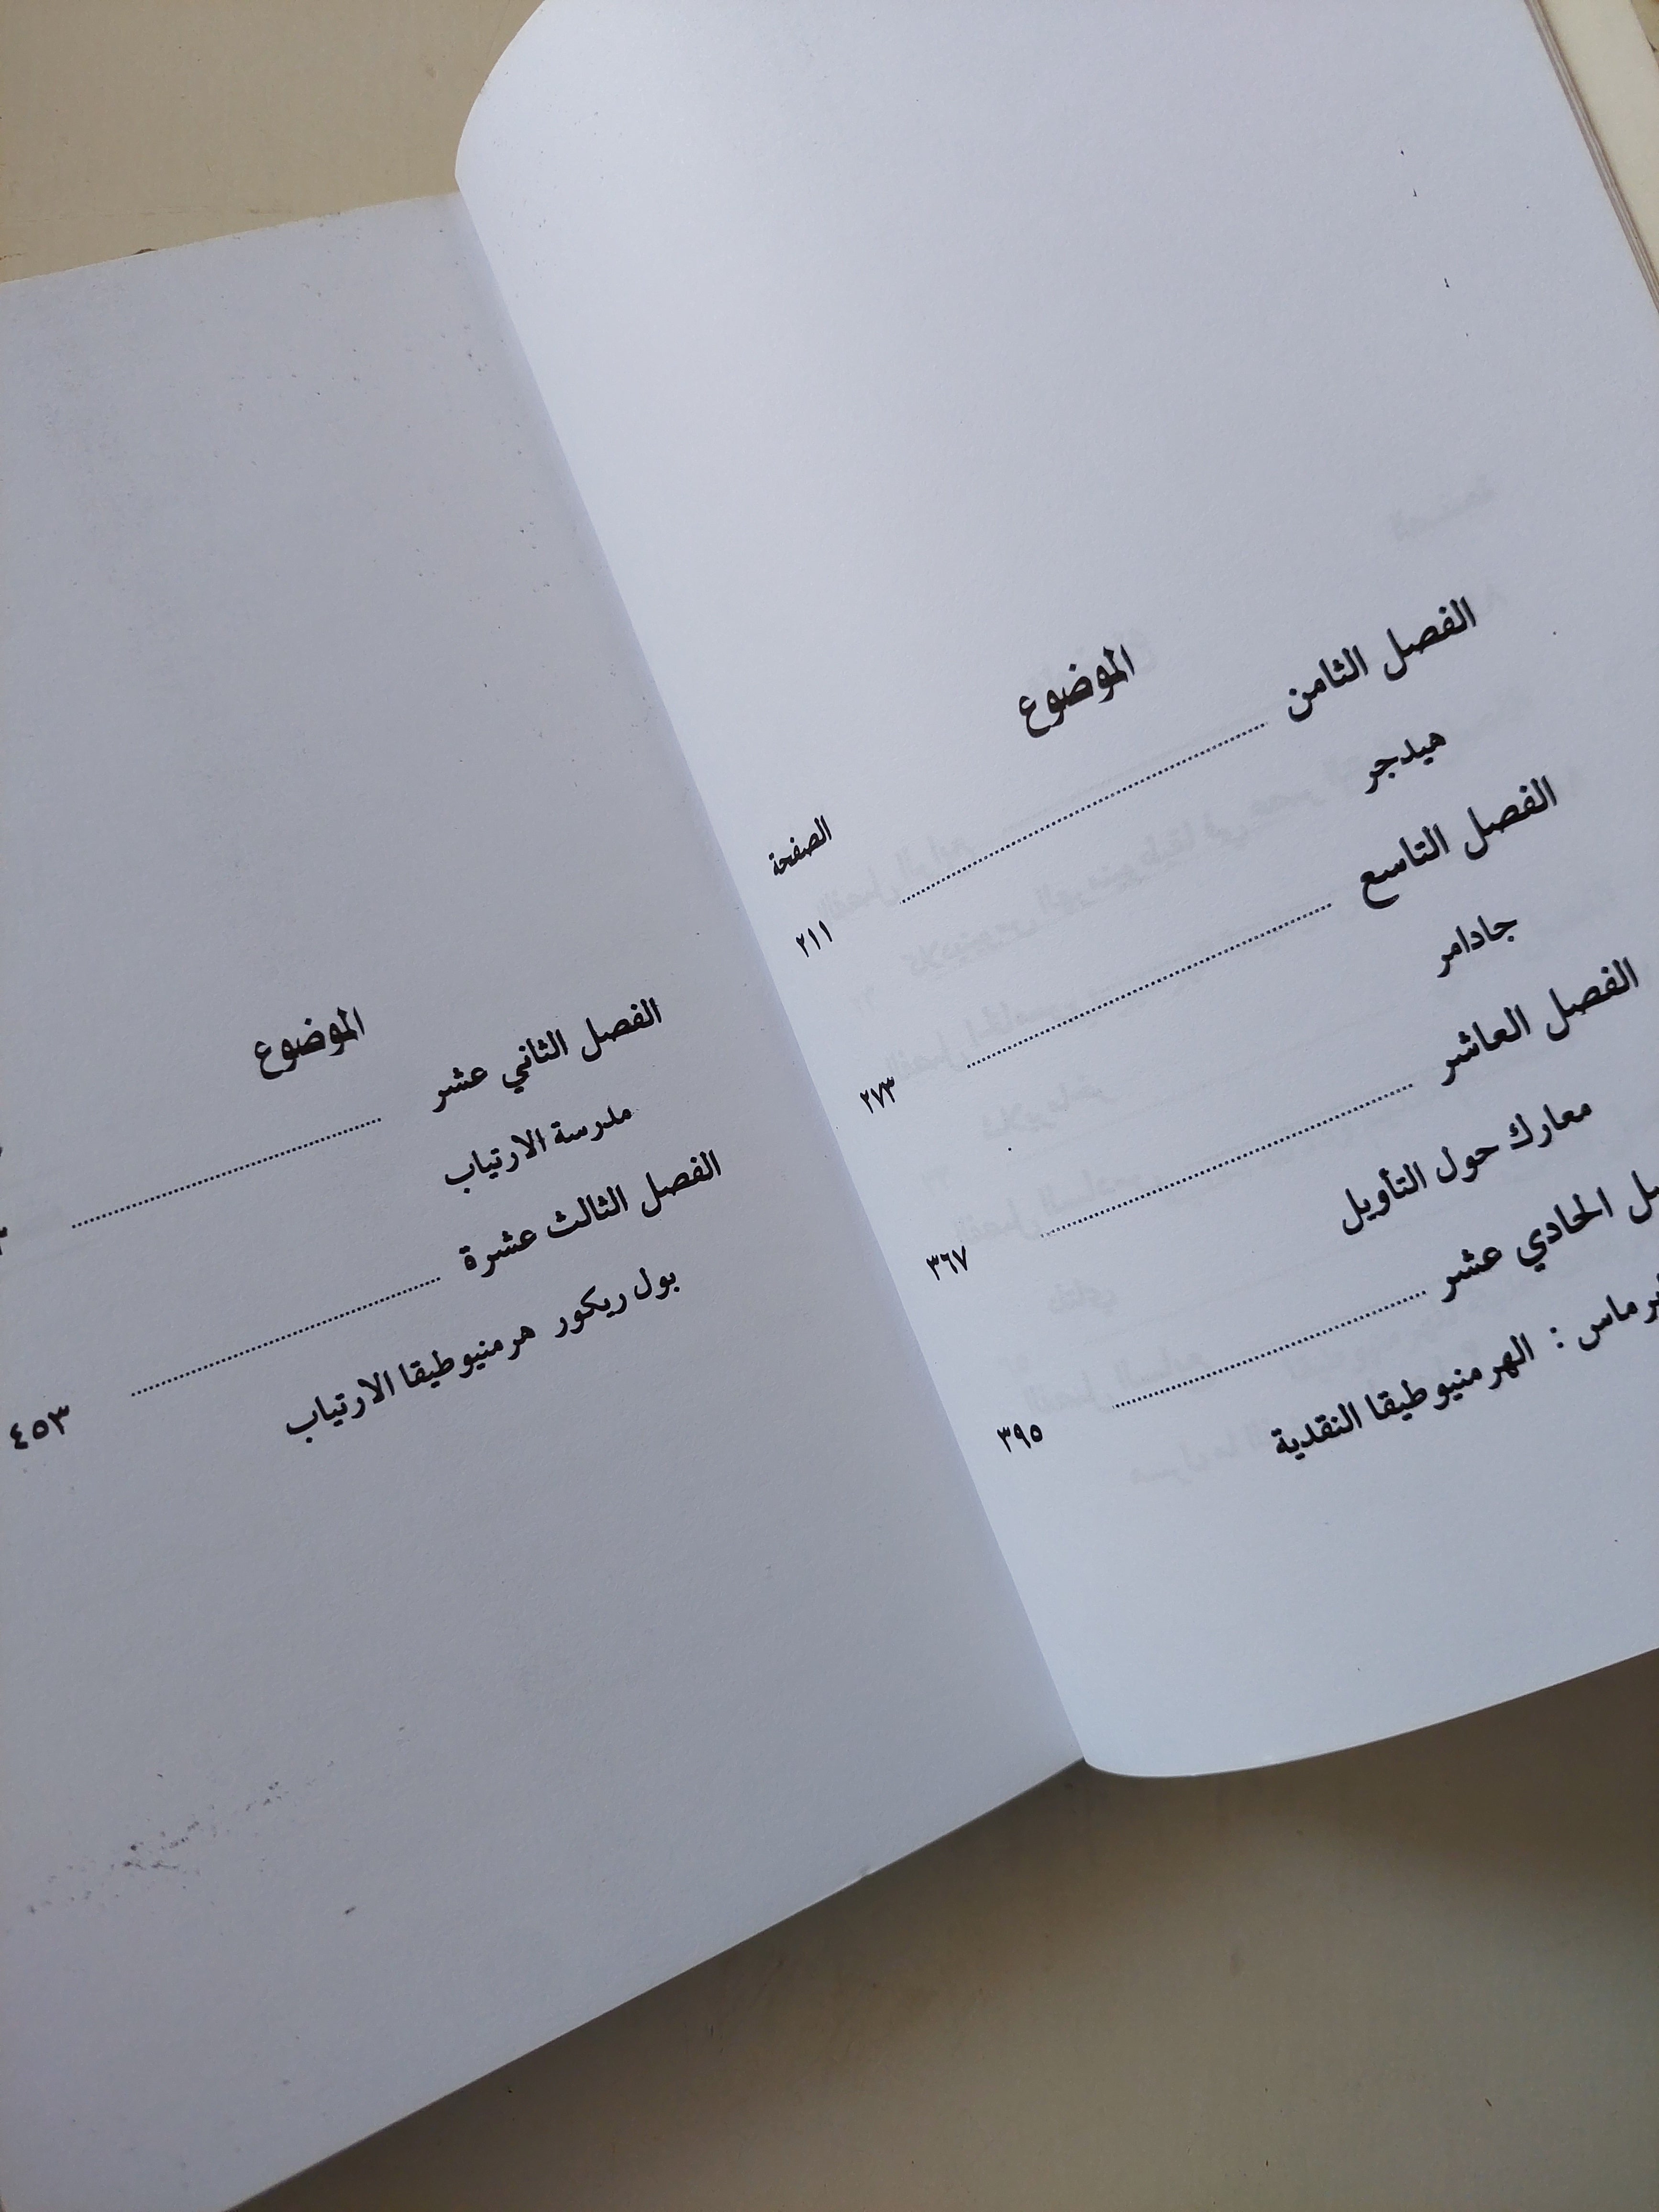 الموضوع
الصفحة
الفصل الثامن ........ ٢١١
هيدجر
الفصل التاسع ........ ٢٧٣
جادامر
الفصل العاشر ........ ٣٦٧
معارك حول التأويل
الحادي عشر ........ ٣٩٥
: الهرمنيوطيقا النقدية
الموضوع
الفصل الثاني عشر ........
مدرسة الارتياب
الفصل الثالث عشرة ........ ٤٥٣
بول ريكور هرمنيوطيقا الارتياب